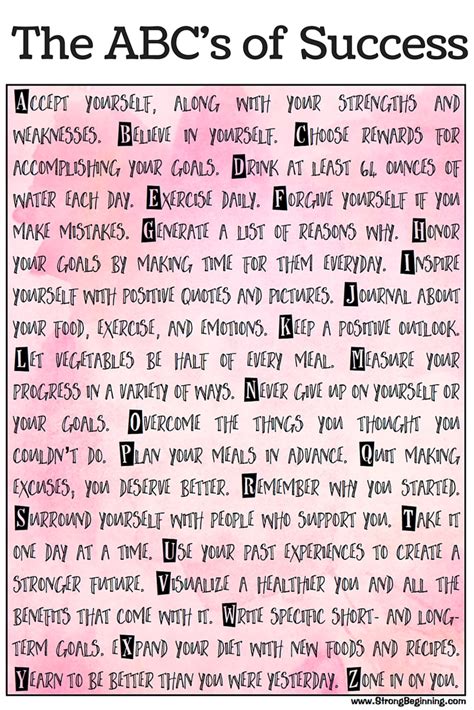 The ABC's of Success
ACCEPT YOURSELF, ALONG WITH YOUR STRENGTHS AND
WEAKNESSES. BELIEVE IN YOURSELF. CHOOSE REWARDS FOR
ACCOMPLISHING YOUR GOALS. DRINK AT LEAST 64 OUNCES OF
WATER EACH DAY. EXERCISE DAILY. FORGIVE YOURSELF IF YOU
MAKE MISTAKES. GENERATE A LIST OF REASONS WHY. HONOR
YOUR GOALS BY MAKING TIME FOR THEM EVERYDAY. INSPIRE
YOURSELF WITH POSITIVE QUOTES AND PICTURES. JOURNAL ABOUT
YOUR FOOD, EXERCISE, AND EMOTIONS. KEEP A POSITIVE OUTLOOK.
LET VEGETABLES BE HALF OF EVERY MEAL. MEASURE YOUR
PROGRESS IN A VARIETY OF WAYS. NEVER GIVE UP ON YOURSELF OR
YOUR GOALS. OVERCOME THE THINGS YOU THOUGHT YOU
COULDN'T DO. PLAN YOUR MEALS IN ADVANCE. QUIT MAKING
EXCUSES, YOU DESERVE BETTER. REMEMBER WHY YOU STARTED.
SURROUND YOURSELF WITH PEOPLE WHO SUPPORT YOU. TAKE IT
ONE DAY AT A TIME. USE YOUR PAST EXPERIENCES TO CREATE A
STRONGER FUTURE. VISUALIZE A HEALTHIER YOU AND ALL THE
BENEFITS THAT COME WITH IT. WRITE SPECIFIC SHORT- AND LONG-
TERM GOALS. EXPAND YOUR DIET WITH NEW FOODS AND RECIPES.
YEARN TO BE BETTER THAN YOU WERE YESTERDAY. ZONE IN ON YOU.
www.StrongBeginning.com